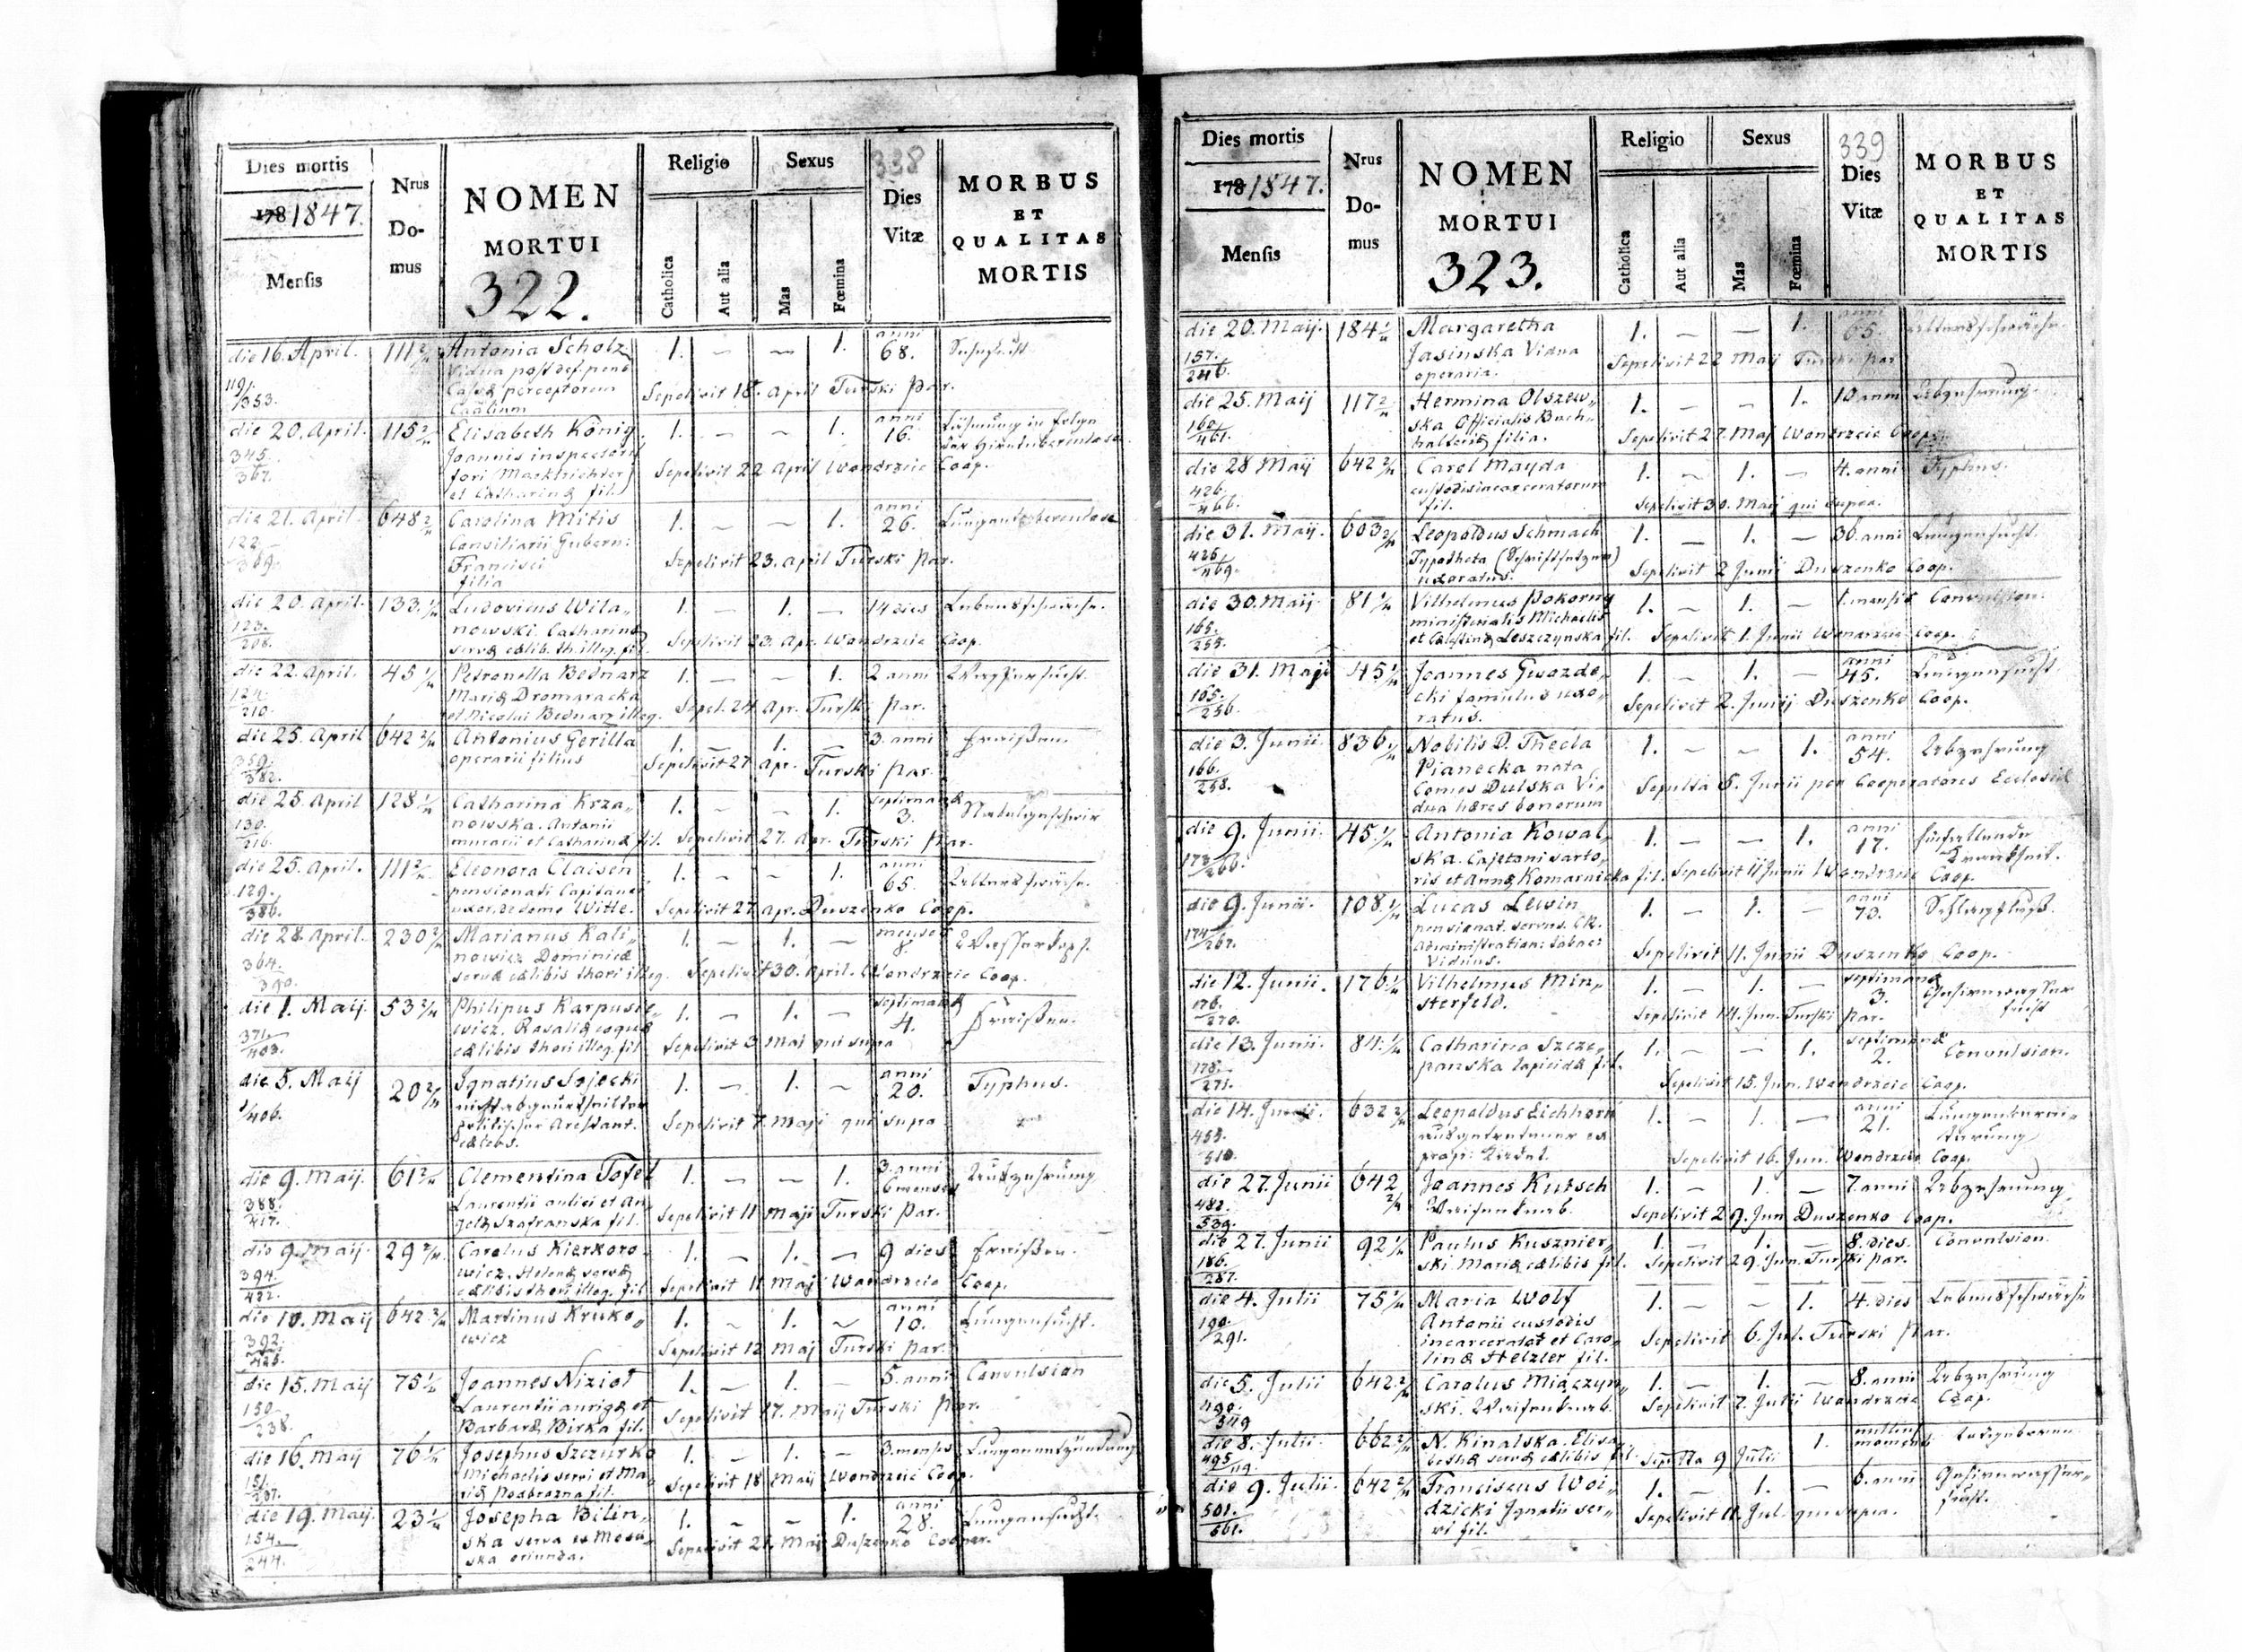 338
Dies mortis
178 1847.
Mensis
Nrus
Do-
mus
NOMEN
MORTUI
322.
Religio
Catholica
Aut alia
Sexus
Mas
Fœmina
Dies
Vitæ
MORBUS
ET
QUALITAS
MORTIS
die 16. April. 111 2/4 Antonia Scholz 1. — — 1. anni 68.
Vidua post def. pens.
Cassæ perceptorem
119/353. Sepelivit 18. April Turski Par.
die 20. April. 115 2/4 Elisabeth König 1. — — 1. anni 16. Lähmung in Folge
Joannis inspectoris der Hirntuberculose
345. fori (Marktrichter)
367. et Catharinæ fil. Sepelivit 22 April Wondrzeie Coop.
die 21. April. 648 2/4 Carolina Mitis 1. — — 1. anni 26. Lungentuberculose
122. Consiliarii Gubern:
369. Francisci
filia Sepelivit 23. April Turski Par.
die 20. April. 133. 1/4 Ludovicus Wila„ 1. — 1. — 14 dies Lebensschwäche.
123. nowski. Catharinæ
208. servæ cælib. th. illeg. fil. Sepelivit 23. Apr. Wondrzeie Coop.
die 22. April. 45 1/4 Petronella Bednarz 1. — — 1. 2 anni Wassersucht.
124. Mariæ Dromaracka
210. et Nicolai Bednarz illeg. Sepel. 24 Apr. Turski Par.
die 25. April 642 2/4 Antonius Gerilla 1. — 1. — 3. anni Fraißen
359. operarii filius
382. Sepelivit 27 Apr. Turski Par.
die 25. April 128 1/4 Catharina Krza„ 1. — — 1. septimanæ 3.
130. nowska. Antonii
216. murarii et Catharinæ fil. Sepelivit 27. Apr. Turski Par.
die 25. April. 111 2/4 Eleonora Claisen 1. — — 1. anni 65. Altersschwäche.
129. pensionati Capitanei
386. uxor, de domo Witte. Sepelivit 27 Apr. Duszenko Coop.
die 28. April. 230 2/4 Marianus Kali„ 1. — 1. — menses 8. Wasserkopf.
364. nowicz Dominicæ
390. servæ cælibis thori illeg. Sepelivit 30. April. Wondrzeie Coop.
die 1. Maij. 53 2/4 Philipus Karpusie„ 1. — 1. — septimanæ 4. Fraißen.
371. wicz. Rosaliæ coquæ
403. cælibis thori illeg. fil. Sepelivit 3 Maj qui supra
die 5. Maij 20 2/4 Ignatius Sojecki 1. — 1. — anni 20. Typhus.
406. nicht abgeurtheilter
politischer Arestant.
cælebs. Sepelivit 7. Maji qui supra
die 9. Maij. 61 2/4 Clementina Tofel 1. — — 1. 3. anni 6 menses Auszehrung
388. Laurentii aulici et An„
417. gelæ Szafranska fil. Sepelivit 11 Maji Turski Par.
die 9. Maij. 29 2/4 Carolus Kierkoro„ 1. — 1. — 9 dies Fraißen.
394. wicz. Helenæ servæ
422. cælibis thori illeg. fil. Sepelivit 11 Maj Wondrzeie Coop.
die 10. Maij 642 2/4 Martinus Kruko„ 1. — 1. — anni 10. Lungensucht.
392. wicz
425. Sepelivit 12 Maj Turski Par.
die 15. Maij 75 1/4 Joannes Nizioł 1. — 1. — 5. anni Convulsion
150. Laurentii aurigæ et
238. Barbaræ Birka fil. Sepelivit 17. Maij Turski Par.
die 16. Maij 76 1/4 Josephus Szczurko 1. — 1. — 3. menses Lungenentzündung
151. Michaelis servi et Ma„
237. riæ Podbrozna fil. Sepelivit 18 Maij Wondrzeie Coop.
die 19. Maij. 23 1/4 Josepha Bilin„ 1. — — 1. anni 28. Lungensucht.
154. ska serva ex
244. oriunda. Sepelivit 21. Maj Duszenko Cooper.
339
Dies mortis
178 1847.
Mensis
Nrus
Do-
mus
NOMEN
MORTUI
323.
Religio
Catholica
Aut alia
Sexus
Mas
Fœmina
Dies
Vitæ
MORBUS
ET
QUALITAS
MORTIS
die 20. Maij. 184 1/4 Margaretha 1. — — 1. anni 65. Altersschwäche
157. Jasinska Vidua
246. operaria. Sepelivit 22 Maij Turski Par
die 25. Maij 117 2/4 Hermina Olszew„ 1. — — 1. 10 anni Abzehrung.
160. ska Officialis Buch„
461. halteriæ filia. Sepelivit 27. Maj Wondrzeie Coop.
die 28 Maij 642 2/4 Carol Mayda 1. — 1. — 4. anni Typhus.
426. custodis incarceratorum
466. fil. Sepelivit 30. Maij qui supra.
die 31. Maij. 603 2/4 Leopoldus Schmach 1. — 1. — 36. anni Lungensucht.
426. Typotheta (Schriftsetzer)
469. uxoratus. Sepelivit 2 Junii Duszenko Coop.
die 30. Maij. 81 1/4 Vilhelmus Pokorny 1. — 1. — 1. mensis Convulsion.
165. ministerialis Michaelis
255. et Celestinæ Leszczynska fil. Sepelivit 1. Junii Wondrzeie Coop.
die 31. Maji 45 1/4 Joannes Gwozde„ 1. — 1. — anni 45. Lungensucht.
165. cki famulus uxo„
256. ratus. Sepelivit 2. Junij Duszenko Coop.
die 3. Junii. 836 1/4 Nobilis D. Thecla 1. — — 1. anni 54. Abzehrung
166. Pianecka nata
258. Comes Dulska Vi„
dua hæres bonorum Sepulta 5. Junii per Cooperatores Ecclesiæ
die 9. Junii. 45. 1/4 Antonia Kowal„ 1. — — 1. anni 17. hinfallende
173. ska. Cajetani sarto„ Krankheit.
266. ris et Annæ Komarnicka fil. Sepelivit 11 Junii Wondrzeie Coop.
die 9. Junii. 108. 1/4 Lucas Lewin 1. — 1. — anni 70. Schlagfluß.
174. pensionat. servus. CR.
267. Administration: tabac:
Viduus. Sepelivit 11. Junii Duszenko Coop.
die 12. Junii. 176 1/4 Vilhelmus Min„ 1. — 1. — septimanæ 3. Gehirnwasser
176. sterfeld. sucht
270. Sepelivit 14. Jun. Turski Par.
die 13. Junii. 84. 1/4 Catharina Szcze„ 1. — — 1. septimanæ 2. Convulsion.
178. panska lapicidæ fil.
271. Sepelivit 15. Jun. Wondrzeie Coop.
die 14. Junii. 632 2/4 Leopoldus Eichhorn 1. — 1. — anni 21.
453. ausgetretener ex
510. Sepelivit 16. Jun. Wondrzeie Coop.
die 27. Junii 642 2/4 Joannes Kutsch 1. — 1. — 7. anni Abzehrung
482. Waisenknab.
539. Sepelivit 29. Jun Duszenko Coop.
die 27. Junii 92 1/4 Paulus Kusznier„ 1. — 1. — 8. dies. Convulsion.
186. ski. Mariæ cælibis fil.
287. Sepelivit 29. Jun. Turski Par.
die 4. Julii 75 1/4 Maria Wolf 1. — — 1. 4. dies Lebensschwäche
190. Antonii custodis
291. incarcerator. et Caro„
linæ Stelzler fil. Sepelivit 6. Jul. Turski Par.
die 5. Julii 642. 2/4 Carolus Miączyn„ 1. — 1. — 8. anni Abzehrung
490. ski. Waisenknab.
549 Sepelivit 7. Julii Wondrzeie Coop.
die 8. Julii. 662 2/4 N. Kinalska. Elisa„ 1. nullius momenti Todgeboren
495 bethæ servæ cælibis fil. Sepulta 9 Julii
die 9. Julii. 642 2/4 Franciscus Woi„ 1. — 1. — 6. anni Gehirnwasser„
501. dzicki Ignatii ser„ sucht.
561. vi fil. Sepelivit 11. Jul. qui supra.